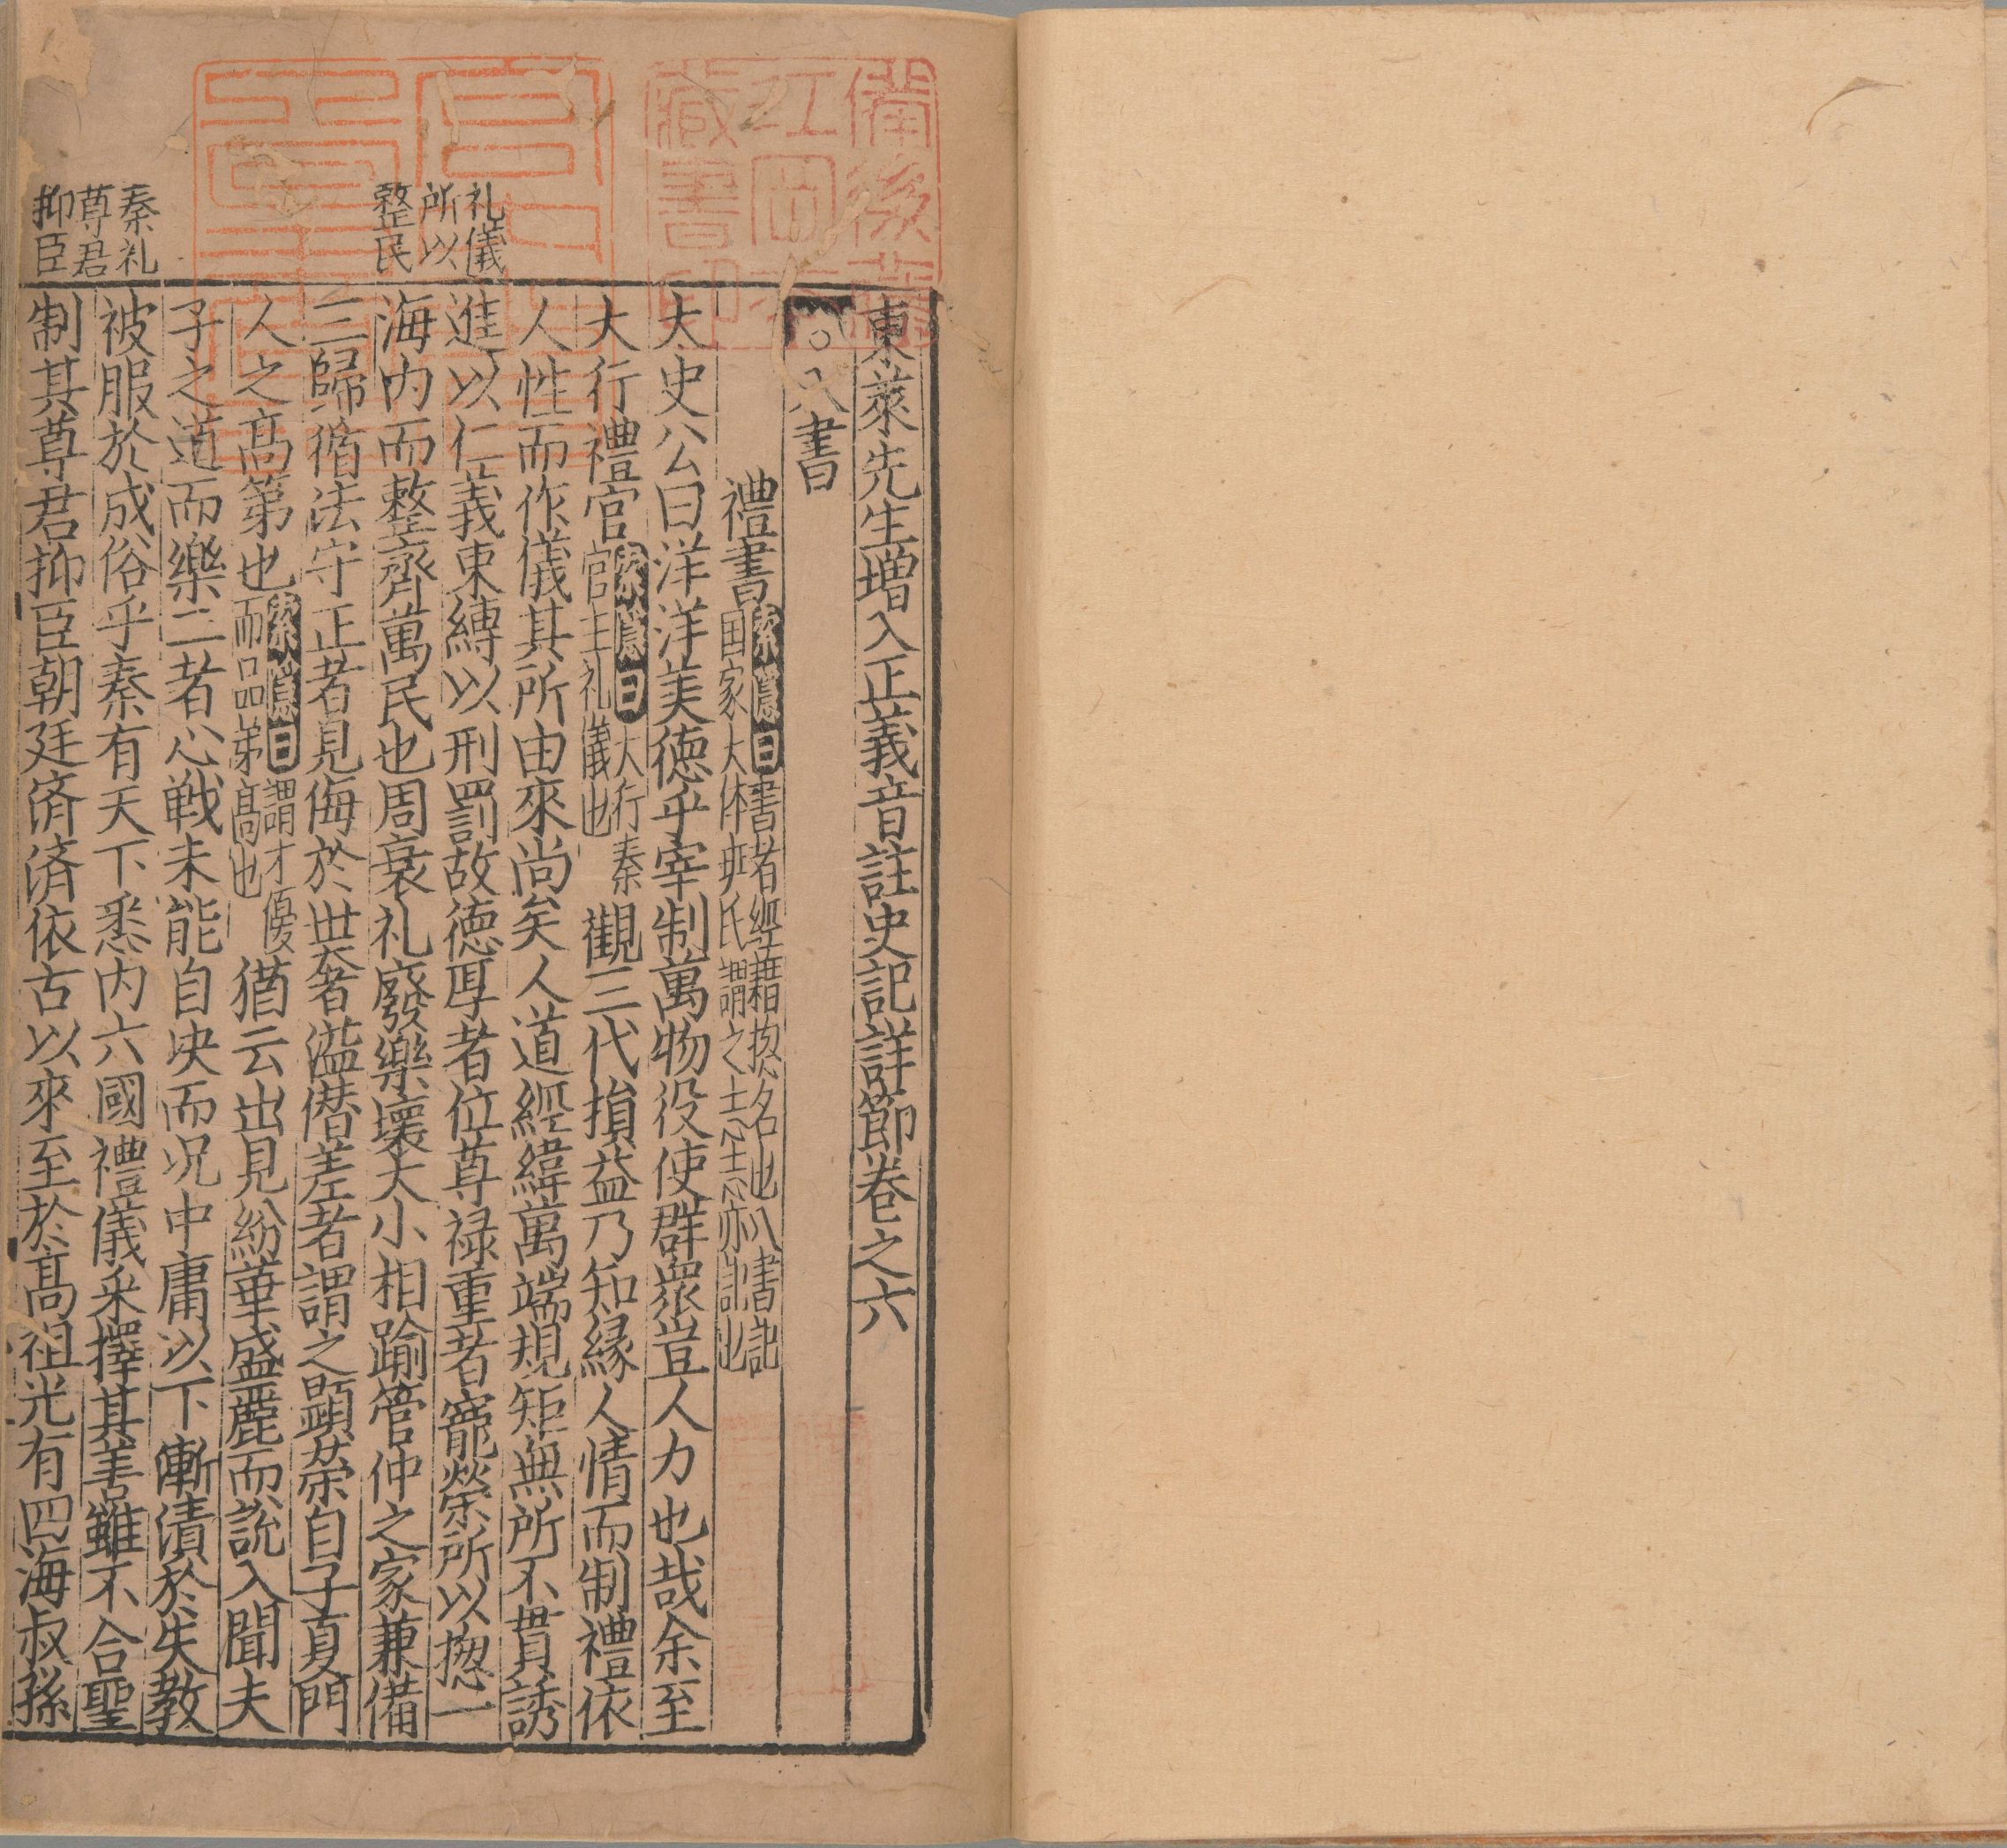 東萊先生増入正義音註史記詳節卷之六
○八書
禮書 索隱曰書者經籍揔名也八書記国家大体班氏謂之志志亦記也
太史公曰洋洋美徳乎宰制萬物役使群衆豈人力也哉余至
大行禮官 索隱曰大行秦官主礼儀也 觀三代損益乃知縁人情而制禮依
人性而作儀其所由來尚矣人道經緯萬端規矩無所不貫誘
進以仁義東縛以刑罰故徳厚者位尊禄重者寵榮所以揔一
海内而整齊萬民也周衰礼廢樂壞大小相踰管仲之家兼備
三歸循法守正者見侮於世奢溢僣差者謂之顯荣自子夏門
人之髙第也 索隱曰謂才優而品第髙也 猶云出見紛華盛麗而說入聞夫
子之道而樂二者心戦未能自决而况中庸以下漸漬於失教
被服於成俗乎秦有天下悉内六國禮儀采擇其善雖不合聖
制其尊君抑臣朝廷済済依古以來至於髙祖光有四海叔孫
礼儀
所以
整民
秦礼
尊君
抑臣
備後福
江田
藏書印